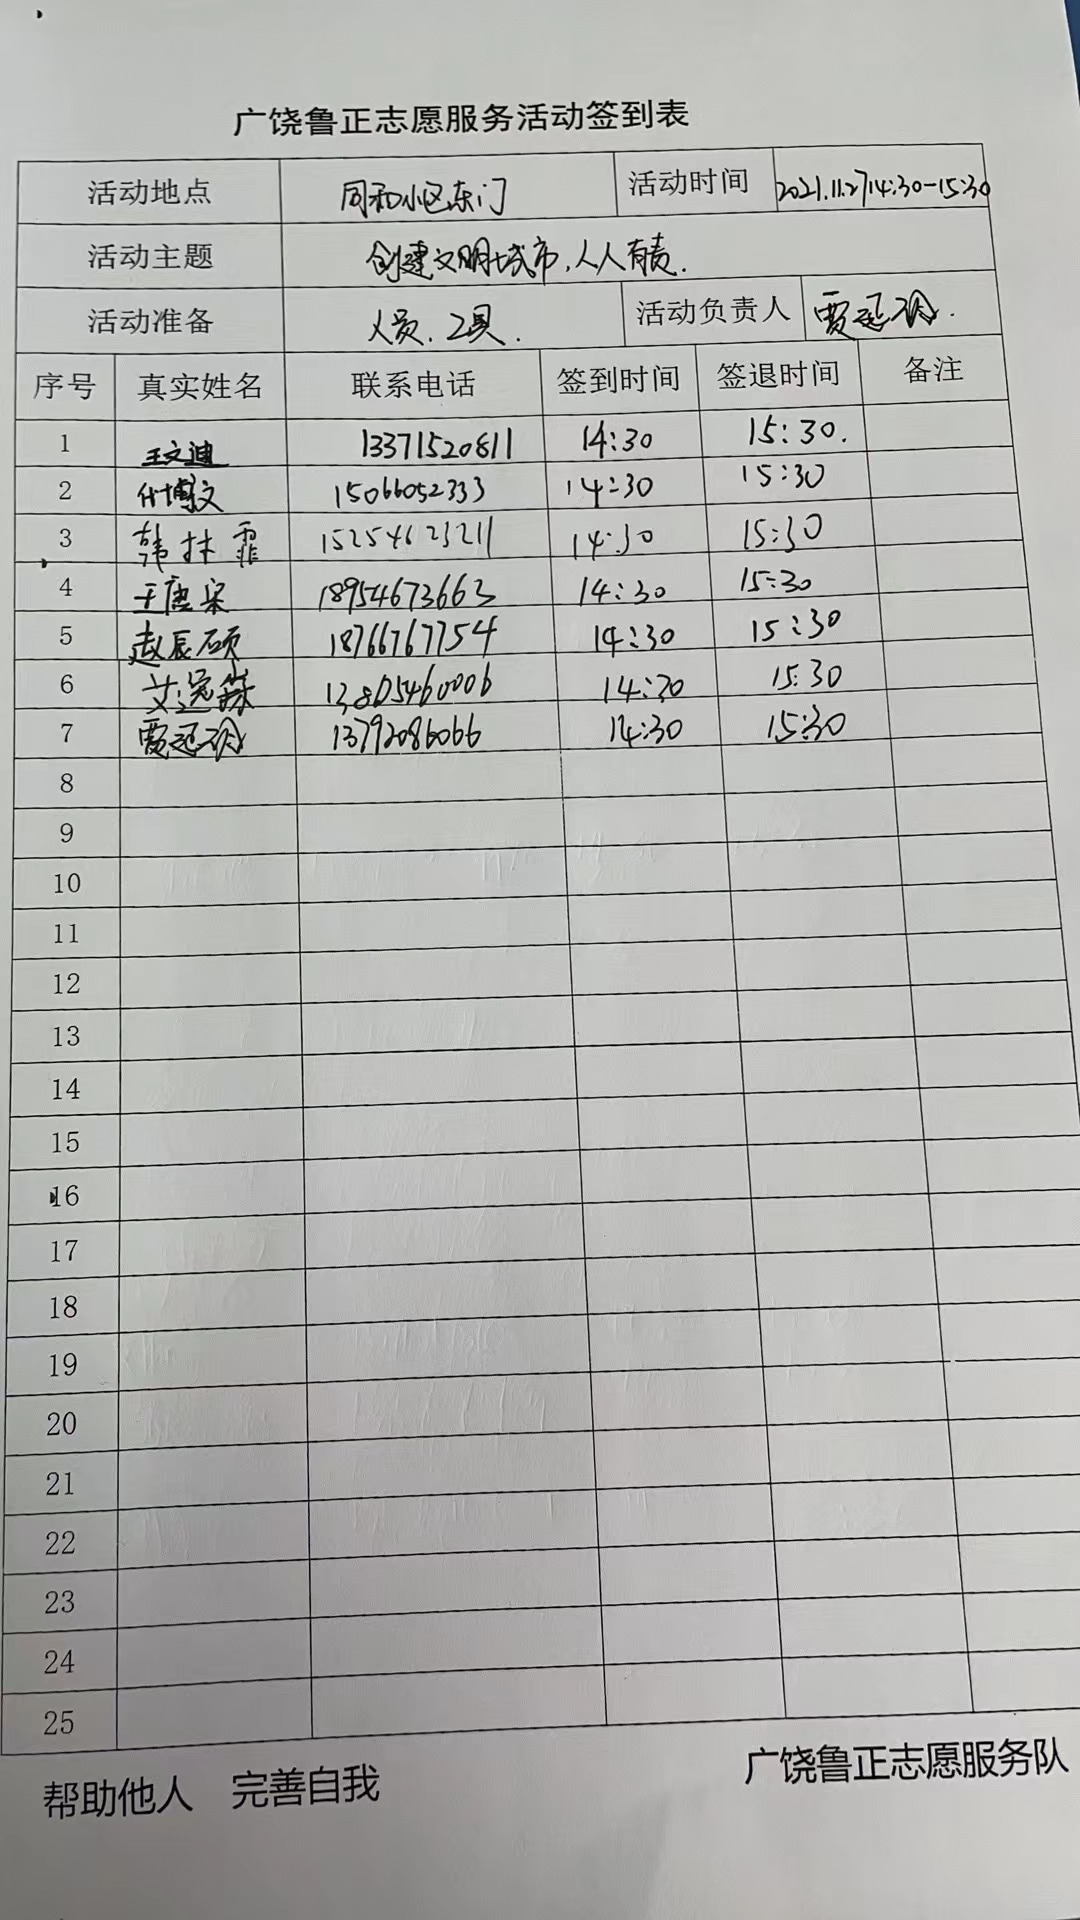 广饶鲁正志愿服务活动签到表
活动地点 同和小区东门 活动时间 2021.11.27 14:30-15:30
活动主题 创建文明城市，人人有责.
活动准备 人员.工具. 活动负责人 贾
序号 真实姓名 联系电话 签到时间 签退时间 备注
1 王文迪 13371520811 14:30 15:30.
2 付博文 15066052333 14:30 15:30
3 韩林霏 15254623211 14:30 15:30
4 王唐宋 18954673663 14:30 15:30
5 赵辰硕 18766767754 14:30 15:30
6 艾逸霖 13805460006 14:30 15:30
7 贾 13792086066 14:30 15:30
8
9
10
11
12
13
14
15
16
17
18
19
20
21
22
23
24
25
帮助他人 完善自我 广饶鲁正志愿服务队